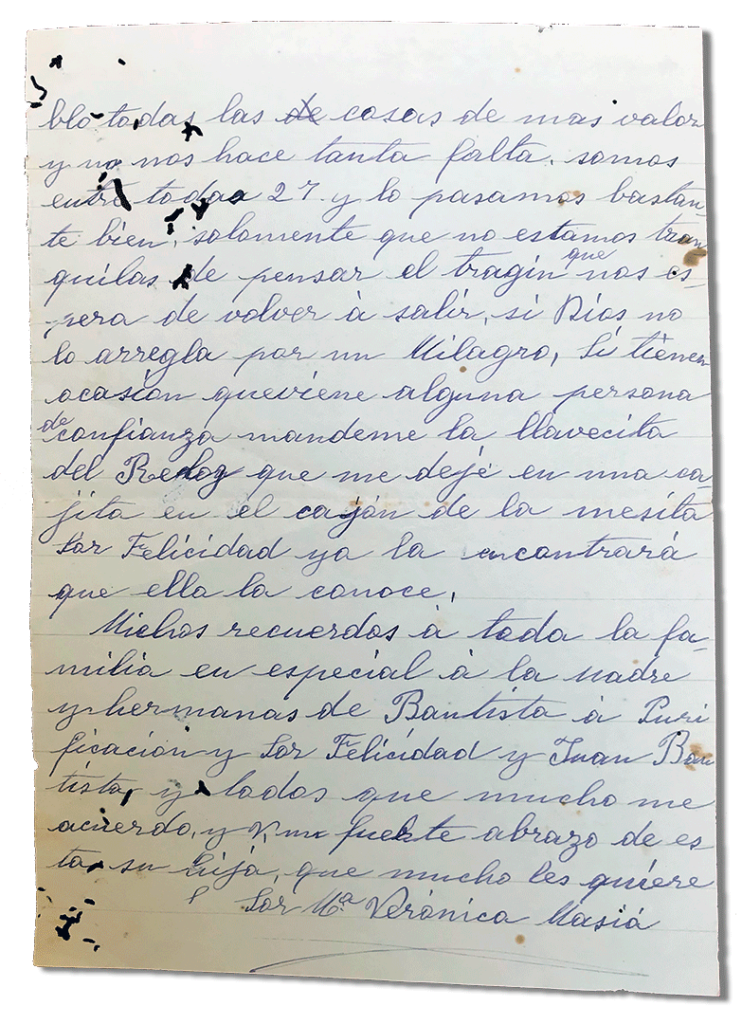 blo todas las de cosas de mas valor
y no nos hace tanta falta. somos
entre todas 27. y lo pasamos bastan-
te bien, solomente que no estamos tran
quilas de pensar el tragin que nos es-
pera de volver à salir, si Dios no
lo arregla por un Milagro, Si tienen
ocasión queviene alguna persona
de confianza mandeme la llavecita
del Reloz que me dejé en una ca-
jita en el cayón de la mesita
Sor Felicidad ya la encontrará
que ella la conoce,
Michos recuerdos à toda la fa-
milia en especial à la Madre
y hermanas de Bautista à Puri
ficacion y Sor Felicidad y Juan Bau
tista, y todos que mucho me
acuerdo, y un fuerte abrazo de es
ta su hija, que mucho les quiere
Sor Mª Verónica Masiá